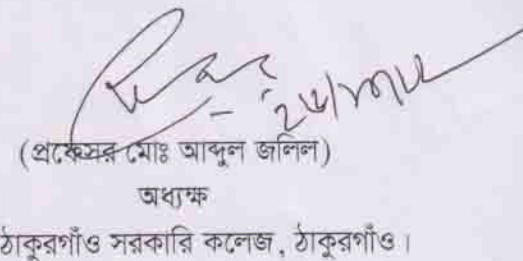 (প্রফেসর মোঃ আব্দুল জলিল)
অধ্যক্ষ
ঠাকুরগাঁও সরকারি কলেজ, ঠাকুরগাঁও।